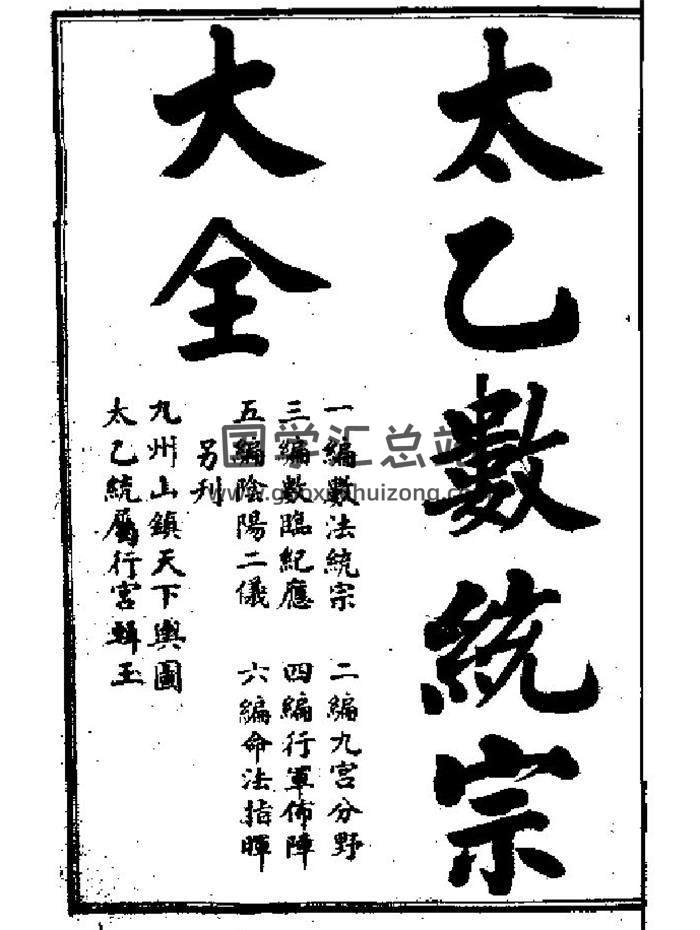 太乙數統宗
大全
一編數法統宗 二編九宮分野
三編數臨紀應 四編行軍佈陣
五編陰陽二儀 六編命法指暉
另刋
九州山鎮天下輿圖
太乙統屬行宮輯玉
国学汇总站
www.guoxuehuizong.com